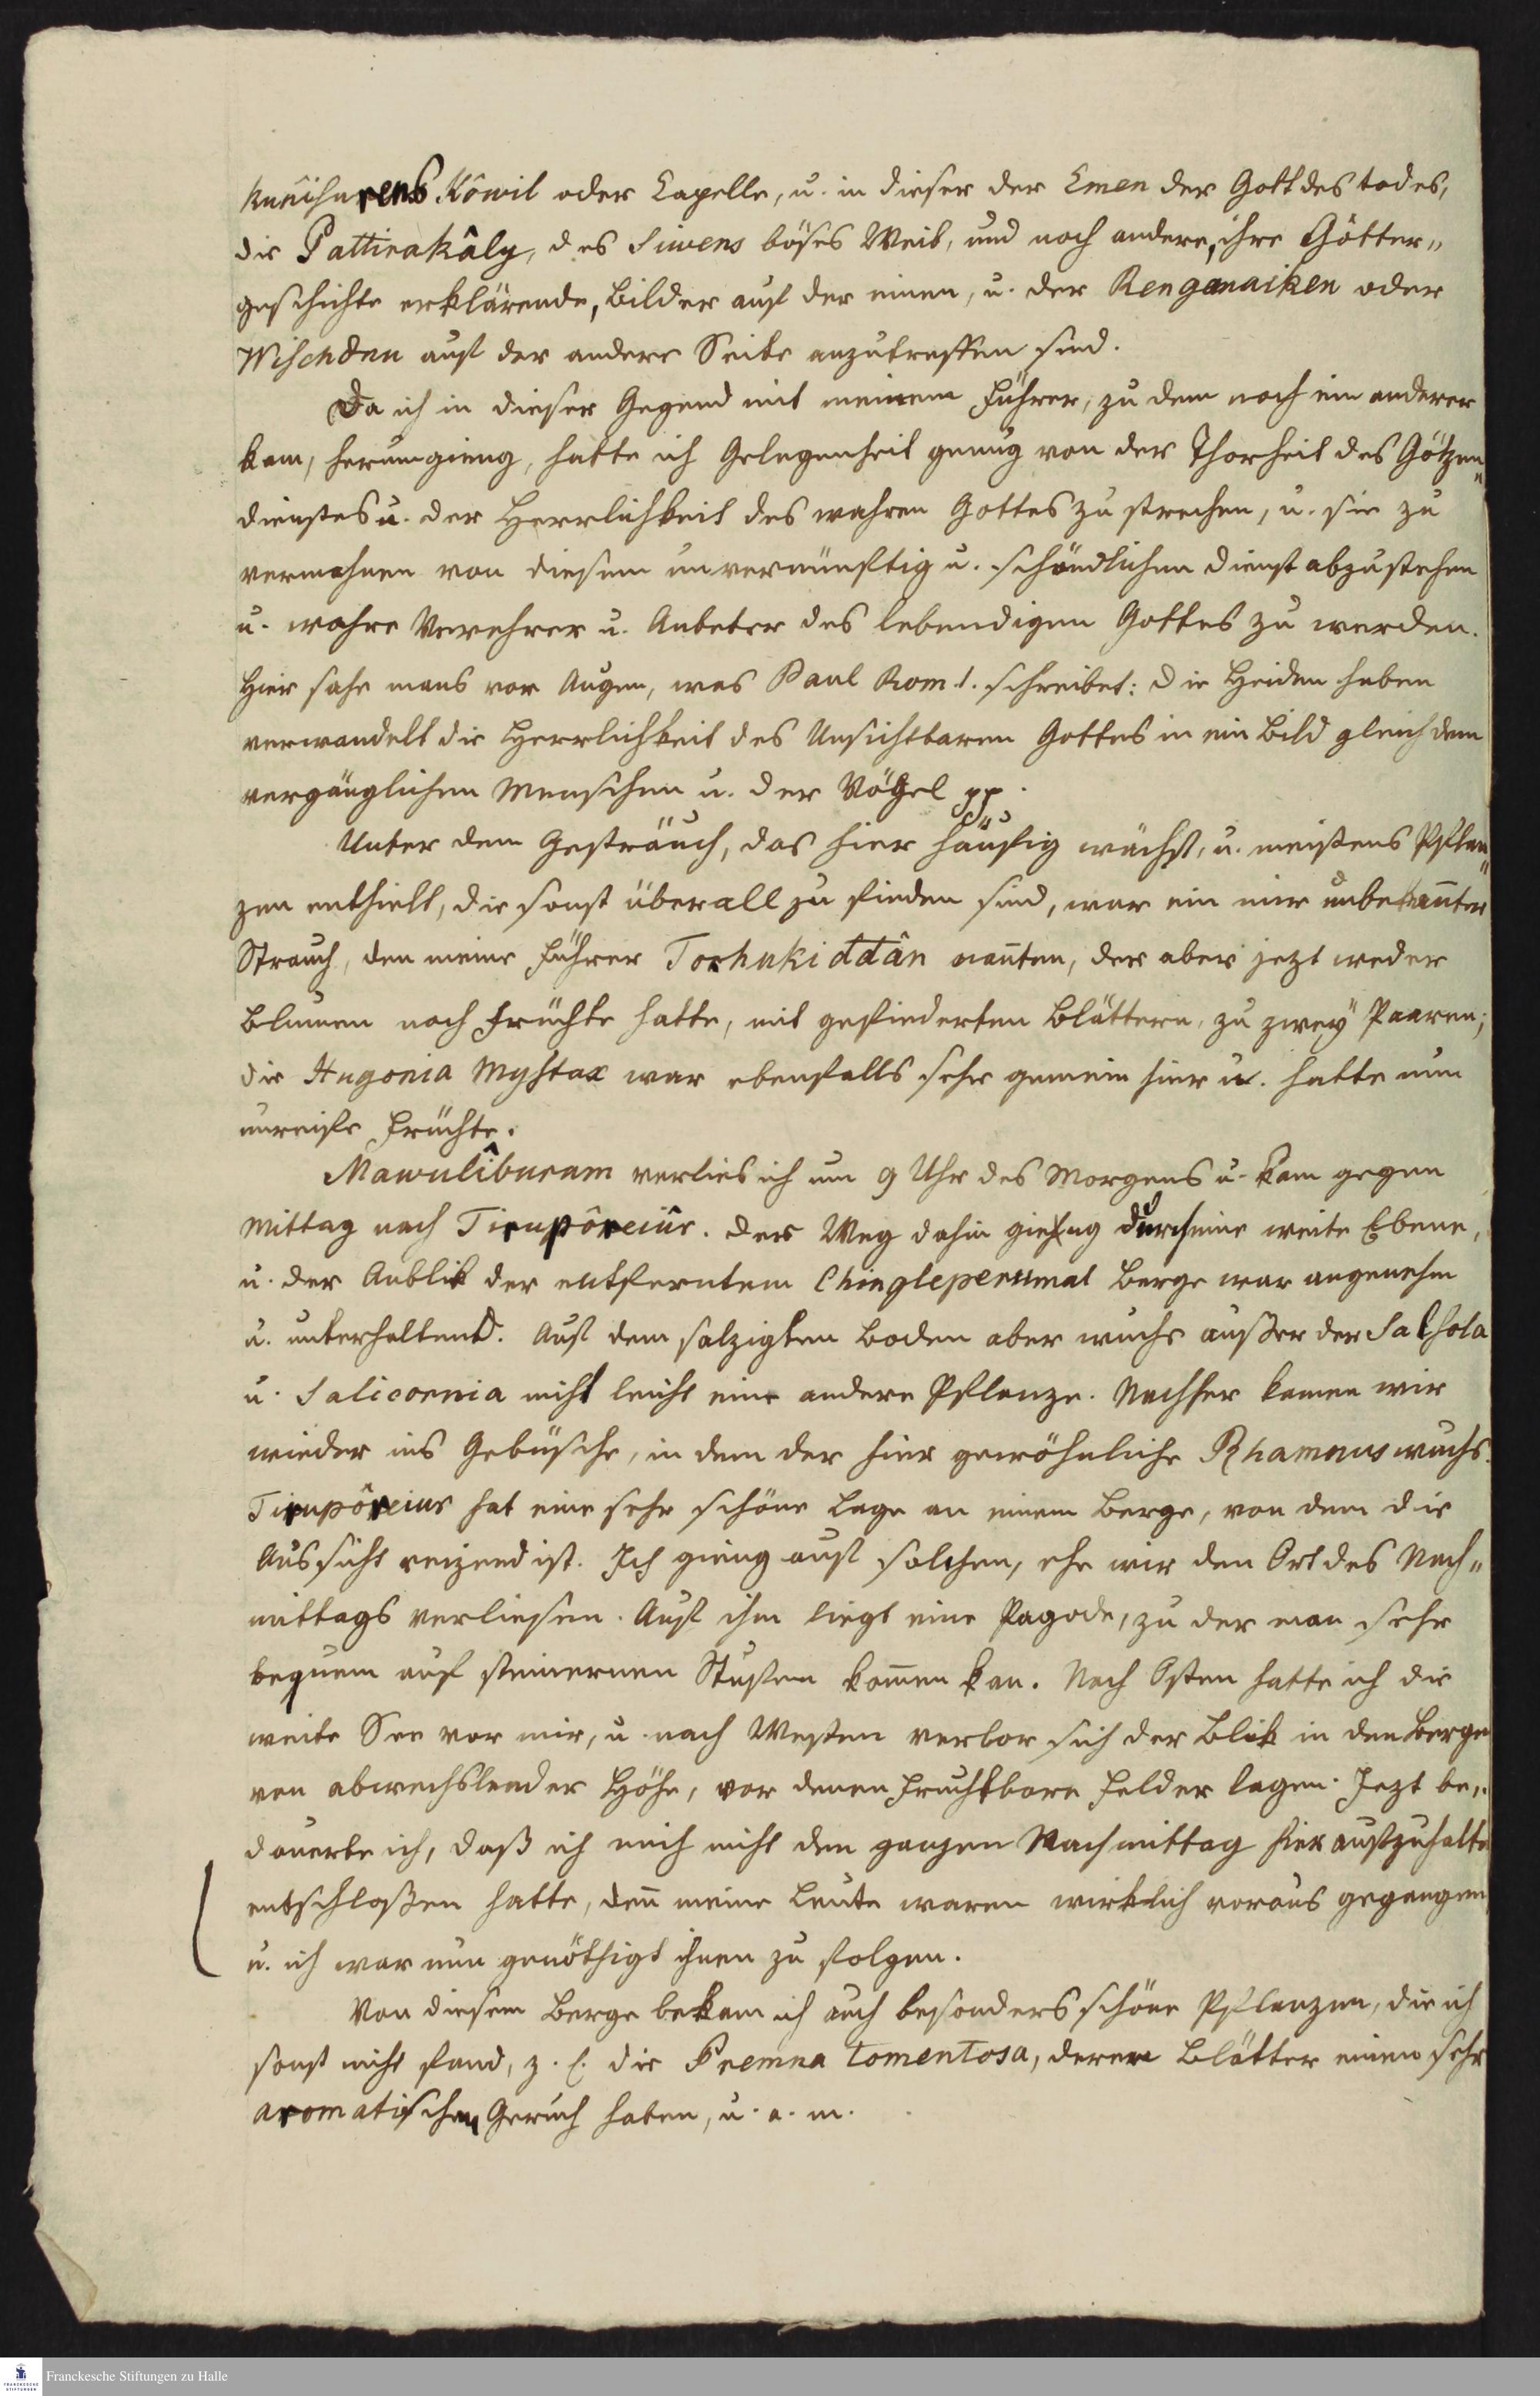 Kawiharens Kôwil oder Capelle, u. in dieser der Emen der Gott des todes,
die Pattirakâly, des Siwens böses Weib, und noch andere, ihre Götter„
geschichte erklärende, Bilder auf der einen, u. der Renganaiken oder
Wischdnu auf der andere Seite anzutreffen sind.
Da ich in dieser Gegend mit meinem Führer, zu dem noch ein anderer
kam, herumgieng, hatte ich Gelegenheit genug von der Thorheit des Götzen„
dienstes u. der Herrlichkeit des wahren Gottes zu sprechen, u. sie zu
vermahnen von diesem unvernünftig u. schändlichen Dienst abzustehen
u. wahre Verehrer u. Anbeter des lebendigen Gottes zu werden.
Hier sahe mans vor Augen, was Paul Rom. 1. schreibet: Die Heiden haben
verwandelt die Herrlichkeit des Unsichtbaren Gottes in ein Bild gleich dem
vergänglichen Menschen u. der Vögel pp.
Unter dem Gesträuch, das hier häufig wächst, u. meistens Pflan„
zen enthielt, die sonst überall zu finden sind, war ein mir unbekan̄ter
Strauch, den meine Führer Torhukiddân nan̄ten, der aber jezt weder
Blumen noch Früchte hatte, mit gefiederten Blättern, zu zwey Paaren;
die Hugonia Mystax war ebenfalls sehr gemein hier u. hatte nun
unreife Früchte.
Mawulîburam verlies ich um 9 Uhr des Morgens u. kam gegen
Mittag nach Tirupôreiûr. Der Weg dahin gieng durch eine weite Ebene,
u. der Anblik der entferntem Chingleperumal Berge war angenehm
u. unterhaltend. Auf dem salzigten Boden aber wuchs außer der Salsola
u. Salicornia nicht leicht eine andere Pflanze. Nachher kamen wir
wieder ins Gebüsche, in dem der hier gewöhnliche Rhamnus wuchs.
Tirupôreiur hat eine sehr schöne Lage an einem Berge, von dem die
Aussicht reizend ist. Ich gieng auf solchen, ehe wir den Ort des Nach„
mittags verliesen. Auf ihm liegt eine Pagode, zu der man sehr
bequem auf steinernen Stufen kom̄en kan. Nach Osten hatte ich die
weite See vor mir, u. nach Westen verlor sich der Blik in den Berge
von abwechslender Höhe, vor denen fruchtbare Felder lagen. Jezt be„
dauerte ich, daß ich mich nicht den ganzen Nachmittag hier aufzuhalte
entschloßen hatte, den̄ meine Leute waren wirklich voraus gegangen
u. ich war nun genöthigt ihnen zu folgen.
Von diesem Berge bekam ich auch besonders schöne Pflanzen, die ich
sonst nicht fand, z. E. die Premna tomentosa, deren Blätter einen sehr
aromatischen Geruch haben, u. a. m.
Franckesche Stiftungen zu Halle